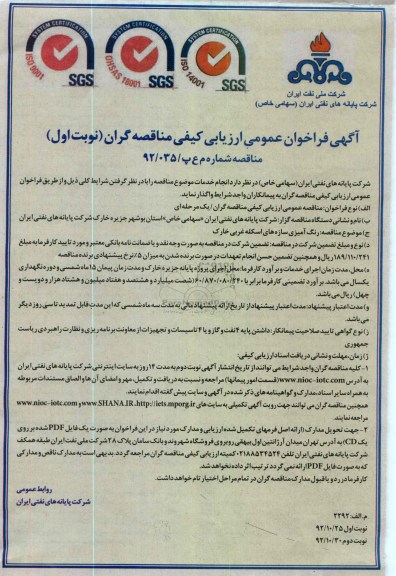 SYSTEM CERTIFICATION
ISO 9001
SGS
SYSTEM CERTIFICATION
OHSAS 18001
SGS
SYSTEM CERTIFICATION
ISO 14001
SGS
شرکت ملی نفت ایران
شرکت پایانه های نفتی ایران (سهامی خاص)
آگهی فراخوان عمومی ارزیابی کیفی مناقصه گران (نوبت اول)
مناقصه شماره م ع پ/۹۲/۰۳۵
شرکت پایانه های نفتی ایران (سهامی خاص) در نظر دارد انجام خدمات موضوع مناقصه را با در نظر گرفتن شرایط کلی ذیل و از طریق فراخوان
عمومی ارزیابی کیفی مناقصه گران به پیمانکاران واجد شرایط واگذار نماید.
الف) نوع فراخوان: مناقصه عمومی ارزیابی کیفی مناقصه گران / یک مرحله ای
ب) نام و نشانی دستگاه مناقصه گزار: شرکت پایانه های نفتی ایران «سهامی خاص» استان بوشهر جزیره خارک شرکت پایانه های نفتی ایران
ج) موضوع مناقصه: رنگ آمیزی سازه های اسکله غربی خارک
د) نوع و مبلغ تضمین شرکت در مناقصه: تضمین شرکت در مناقصه به صورت وجه نقد و یا ضمانت نامه بانکی معتبر و مورد تایید کارفرما به مبلغ
ریال و همچنین تضمین حسن انجام تعهدات در صورت برنده شدن به میزان ۵٪ نرخ پیشنهادی برنده مناقصه
ه) محل، مدت زمان اجرای خدمات و برآورد کارفرما: محل اجرای پروژه پایانه جزیره خارک و مدت زمان پیمان ۱۵ ماه شمسی و دوره نگهداری
یکسال می باشد. برآورد تضمینی کارفرما برابر با ۶۰/۸۷۰/۰۸۰/۲۴۰ (شصت میلیارد و هشتصد و هفتاد میلیون و هشتاد هزار و دویست و
چهل) ریال می باشد.
و) مدت اعتبار پیشنهاد: مدت اعتبار پیشنهاد از تاریخ ارائه پیشنهاد مالی به مدت سه ماه شمسی که این مدت قابل تمدید تا سی روز دیگر
می باشد.
ز) نوع گواهی تایید صلاحیت پیمانکار: داشتن پایه ۴ نفت و گاز و یا ۴ تاسیسات و تجهیزات از معاونت برنامه ریزی و نظارت راهبردی ریاست
جمهوری
ژ) زمان، مهلت و نشانی دریافت اسناد ارزیابی کیفی:
۱- کلیه مناقصه گران واجد شرایط می توانند از تاریخ انتشار آگهی نوبت دوم به مدت ۱۴ روز به سایت اینترنتی شرکت پایانه های نفتی ایران
به آدرس www.nioc-iotc.com (قسمت امور پیمانها) مراجعه و نسبت به دریافت و تکمیل، مهر و امضای آن ها و الصاق مستندات مربوطه
به همراه سایر اسناد، مدارک و گواهینامه های ذکر شده در آگهی و سایت پیش گفته اقدام نمایند.
همچنین مناقصه گران می توانند جهت رویت آگهی تکمیلی به سایت های www.SHANA.IR، http://iets.mporg.ir و www.nioc-iotc.com
مراجعه نمایند
۲- جهت تحویل مدارک (ارائه اصل فرمهای تکمیل شده ارزیابی و مدارک مورد نیاز در این فراخوان به صورت یک فایل PDF شده بر روی
یک CD) به آدرس تهران میدان آرژانتین اول بیهقی روبروی فروشگاه شهروند و بانک سامان پلاک ۲۸ شرکت ملی نفت ایران طبقه همکف
شرکت پایانه های نفتی ایران تلفن ۰۲۱۸۸۵۳۴۵۲۴ کمیته ارزیابی کیفی مناقصه گران مراجعه گردد. بدیهی است به مدارک ناقص و مدارکی
که به صورت فایل PDF ارائه نمی گردد ترتیب اثر داده نخواهد شد.
کارفرما در رد و یا قبول مدارک مناقصه گران در تمام مراحل اختیار تام خواهد داشت.
روابط عمومی
شرکت پایانه های نفتی ایران
م.الف: ۲۲۹۲
نوبت اول ۹۲/۱۰/۲۵
نوبت دوم ۹۲/۱۰/۳۰